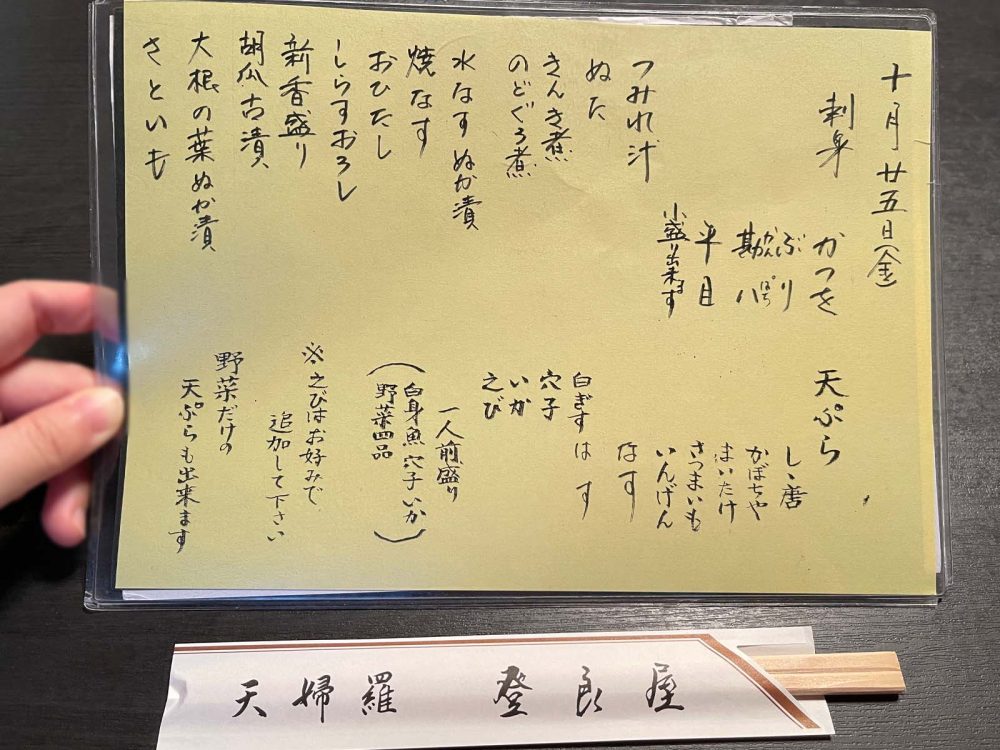 十月廿五日(金)
刺身
かつを
ぶり
勘八
かんぱち
平目
小盛り出来ます
つみれ汁
ぬた
きんき煮
のどぐろ煮
水なす ぬか漬
焼なす
おひたし
しらすおろし
新香盛り
胡瓜古漬
大根の葉ぬか漬
さといも
天ぷら
しゝ唐
かぼちや
まいたけ
さつまいも
いんげん
なす
はす
白ぎす
穴子
いか
えび
一人前盛り
(白身魚 穴子 いか
野菜四品)
※えびはお好みで
追加して下さい
野菜だけの
天ぷらも出来ます
天婦羅 登良屋